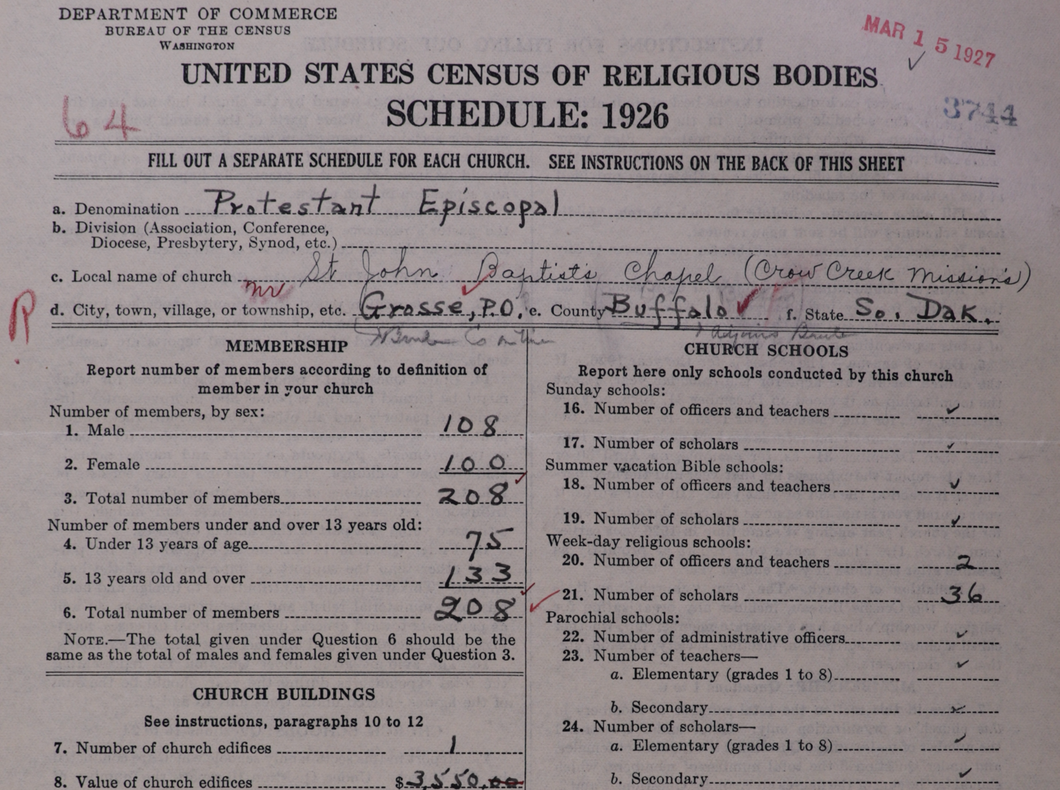 DEPARTMENT OF COMMERCE
BUREAU OF THE CENSUS
WASHINGTON
MAR 15 1927
UNITED STATES CENSUS OF RELIGIOUS BODIES
SCHEDULE: 1926
64
3744
FILL OUT A SEPARATE SCHEDULE FOR EACH CHURCH. SEE INSTRUCTIONS ON THE BACK OF THIS SHEET
a. Denomination Protestant Episcopal
b. Division (Association, Conference,
Diocese, Presbytery, Synod, etc.)
c. Local name of church St John Baptist's Chapel (Crow Creek Mission's)
d. City, town, village, or township, etc. Grosse, P.O. e. County Buffalo f. State So. Dak.
R
Adjoins Brule
MEMBERSHIP
Report number of members according to definition of
member in your church
Number of members, by sex:
1. Male 108
2. Female 100
3. Total number of members 208
Number of members under and over 13 years old:
4. Under 13 years of age 75
5. 13 years old and over 133
6. Total number of members 208
NOTE.—The total given under Question 6 should be
same as the total of males and females given under Question 3.
CHURCH BUILDINGS
See instructions, paragraphs 10 to 12
7. Number of church edifices 1
8. Value of church edifices $3,550.00
CHURCH SCHOOLS
Report here only schools conducted by this church
Sunday schools:
16. Number of officers and teachers ✓
17. Number of scholars ✓
Summer vacation Bible schools:
18. Number of officers and teachers ✓
19. Number of scholars ✓
Week-day religious schools:
20. Number of officers and teachers 2
21. Number of scholars 36
Parochial schools:
22. Number of administrative officers ✓
23. Number of teachers—
a. Elementary (grades 1 to 8) ✓
b. Secondary ✓
24. Number of scholars—
a. Elementary (grades 1 to 8) ✓
b. Secondary ✓